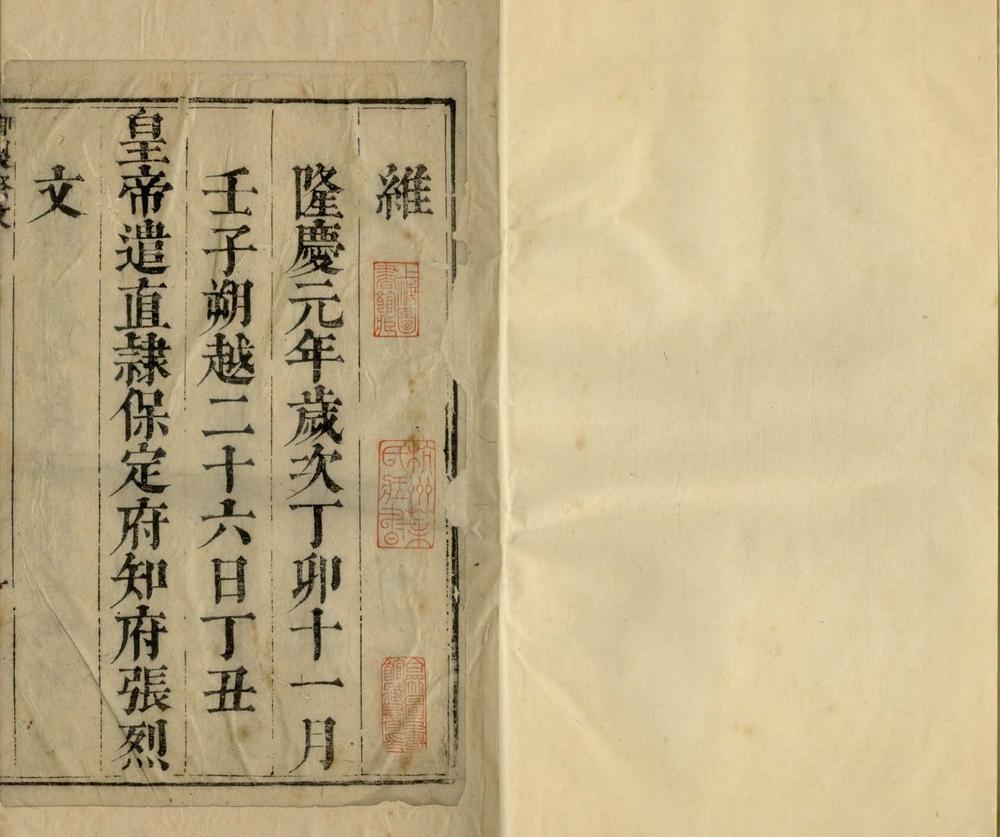 維
隆慶元年歲次丁卯十一月
壬子朔越二十六日丁丑
皇帝遣直隸保定府知府張烈
文
杭州葉氏藏書